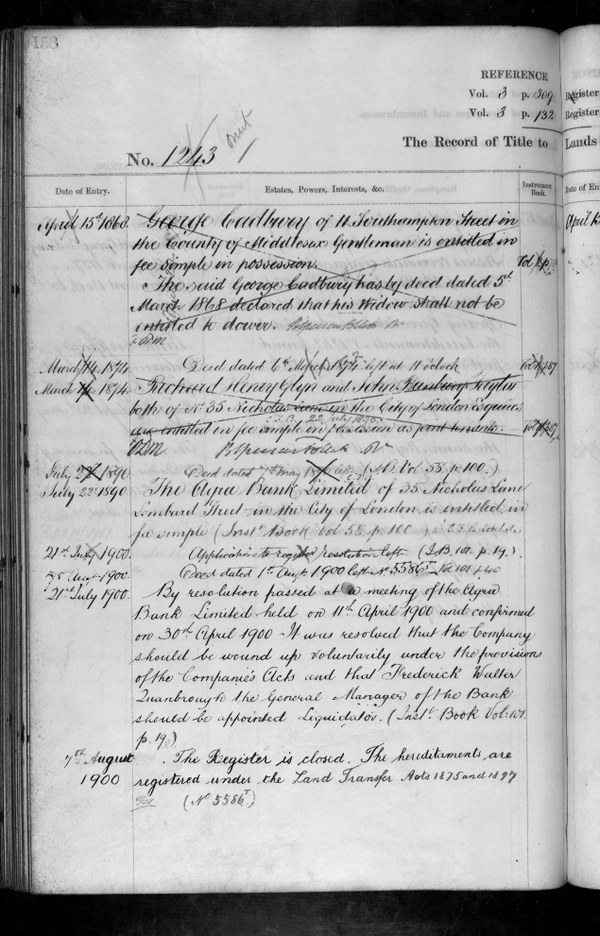 158
REFERENCE
Vol. 3 p. 309
Vol. 3 p. 132
The Record of Title to
No. 1243
Date of Entry.
Estates, Powers, Interests, &c.
Instrument Book.
April 15th 1868.
George Cadbury of 11 Southampton Street in
the County of Middlesex Gentleman is entitled in
fee simple in possession.
The said George Cadbury has by deed dated 5th
March 1868 declared that his Widow shall not be
entitled to dower.
March 14. 1874
Deed dated 6th March 1874 left at 11 o'clock
March 14. 1874.
Richard Henry Glyn and John
both of No 35 Nicholas Lane in the City of London Esquires
are entitled in fee simple in possession as joint tenants.
July 22 1890.
Deed dated 7th May (Vol. 58. p. 100.)
July 22d 1890
The Agra Bank Limited of 35 Nicholas Lane
Lombard Street in the City of London is entitled in
fee simple (Inst. Book Vol. 58 p. 100
21st July 1900.
Application to register resolution left (I.B. 101. p. 19.)
Augt 1900
Deed dated 1st Augt 1900 left No 5586T Vol. 101 p 40
21st July 1900.
By resolution passed at a meeting of the Agra
Bank Limited held on 11th April 1900 and confirmed
on 30th April 1900 It was resolved that the Company
should be wound up voluntarily under the provisions
of the Companies Acts and that Frederick Walter
Quanbrough the General Manager of the Bank
should be appointed Liquidator. (Inst. Book Vol: 101.
p. 19.)
7th August
1900
The Register is closed. The hereditaments are
registered under the Land Transfer Acts 1875 and 1897
(No 5586T.)
Register
Register
Lands
Date of En
April 15